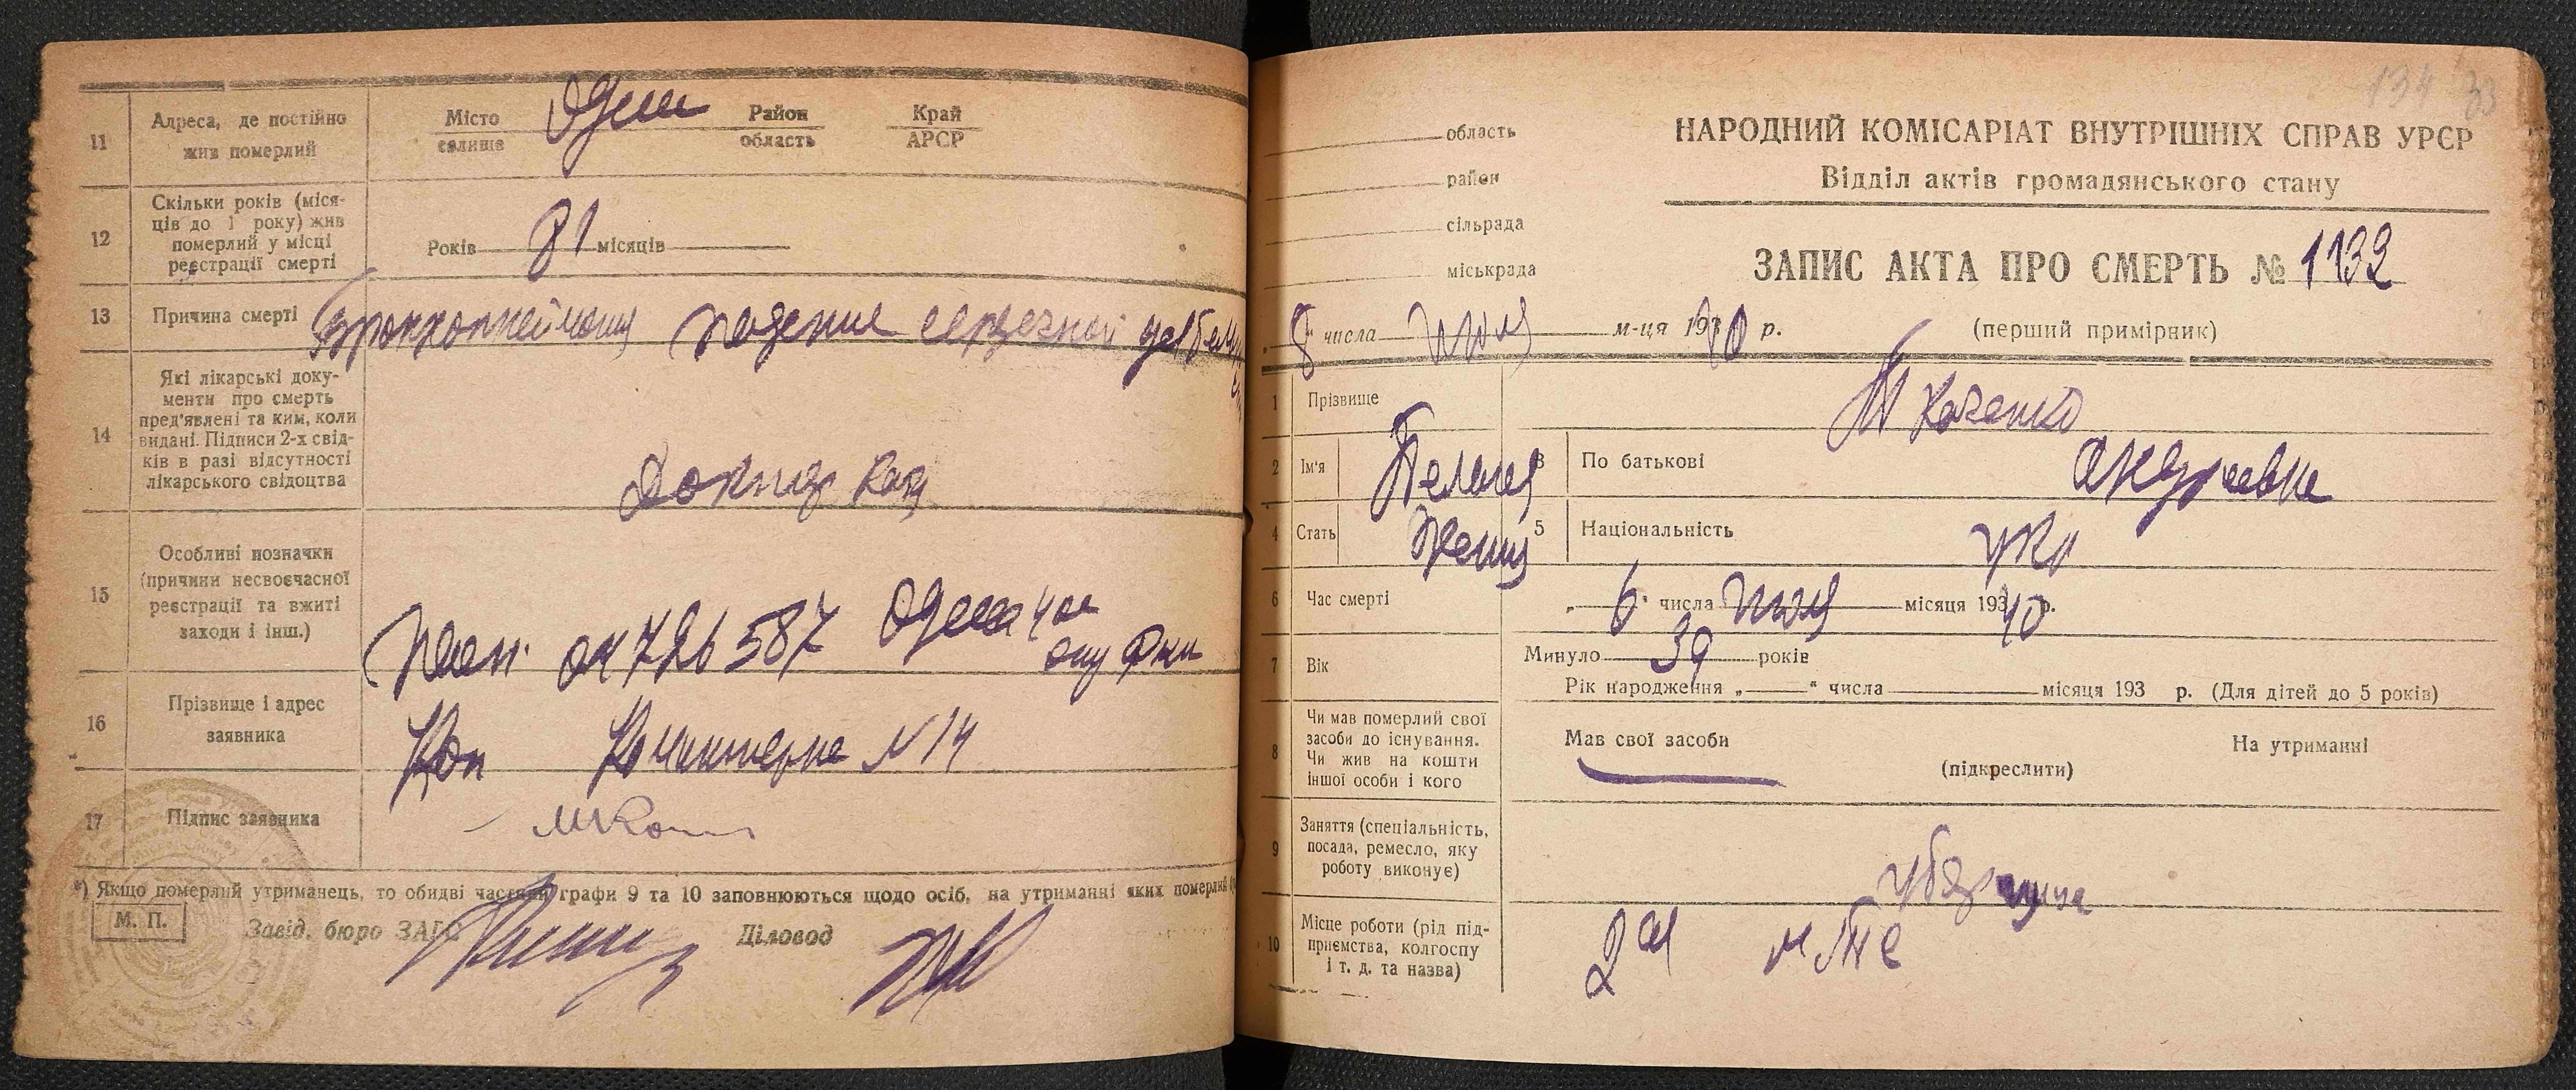 11
Адреса, де постійно
жив померлий
Місто
селище
Одесса
Район
область
Край
АРСР
12
Скільки років (міся-
ців до 1 року) жив
померлий у місці
реєстрації смерті
Років 81 місяців
13
Причина смерті
Бронхопнеймония падение сердечной
14
Які лікарські доку-
менти про смерть
пред'явлені та ким, коли
видані. Підписи 2-х свід-
ків в разі відсутності
лікарського свідоцтва
15
Особливі позначки
(причини несвоєчасної
реєстрації та вжиті
заходи і інш.)
726587 Одесса
16
Прізвище і адрес
заявника
Коминтерна № 14
17
Підпис заявника
*) Якщо померлий утриманець, то обидві частини графи 9 та 10 заповнюються щодо осіб, на утриманні яких померлий
М. П.
Завід. бюро ЗАГС
Діловод
134 33
область
район
сільрада
міськрада
НАРОДНИЙ КОМІСАРІАТ ВНУТРІШНІХ СПРАВ УРСР
Відділ актів громадянського стану
ЗАПИС АКТА ПРО СМЕРТЬ № 1132
8 числа июля м-ця 1940 р.
(перший примірник)
1
Прізвище
Ткаченко
2
Ім'я
Пелагея
3
По батькові
Андреевна
4
Стать
женщ
5
Національність
укр
6
Час смерті
„ 6 числа июля місяця 193 40 р.
7
Вік
Минуло 39 років
Рік народження „ “ числа місяця 193 р. (Для дітей до 5 років)
8
Чи мав померлий свої
засоби до існування.
Чи жив на кошти
іншої особи і кого
Мав свої засоби
На утриманні
(підкреслити)
9
Заняття (спеціальність,
посада, ремесло, яку
роботу виконує)
уборщица
10
Місце роботи (рід під-
приємства, колгоспу
і т. д. та назва)
2ая